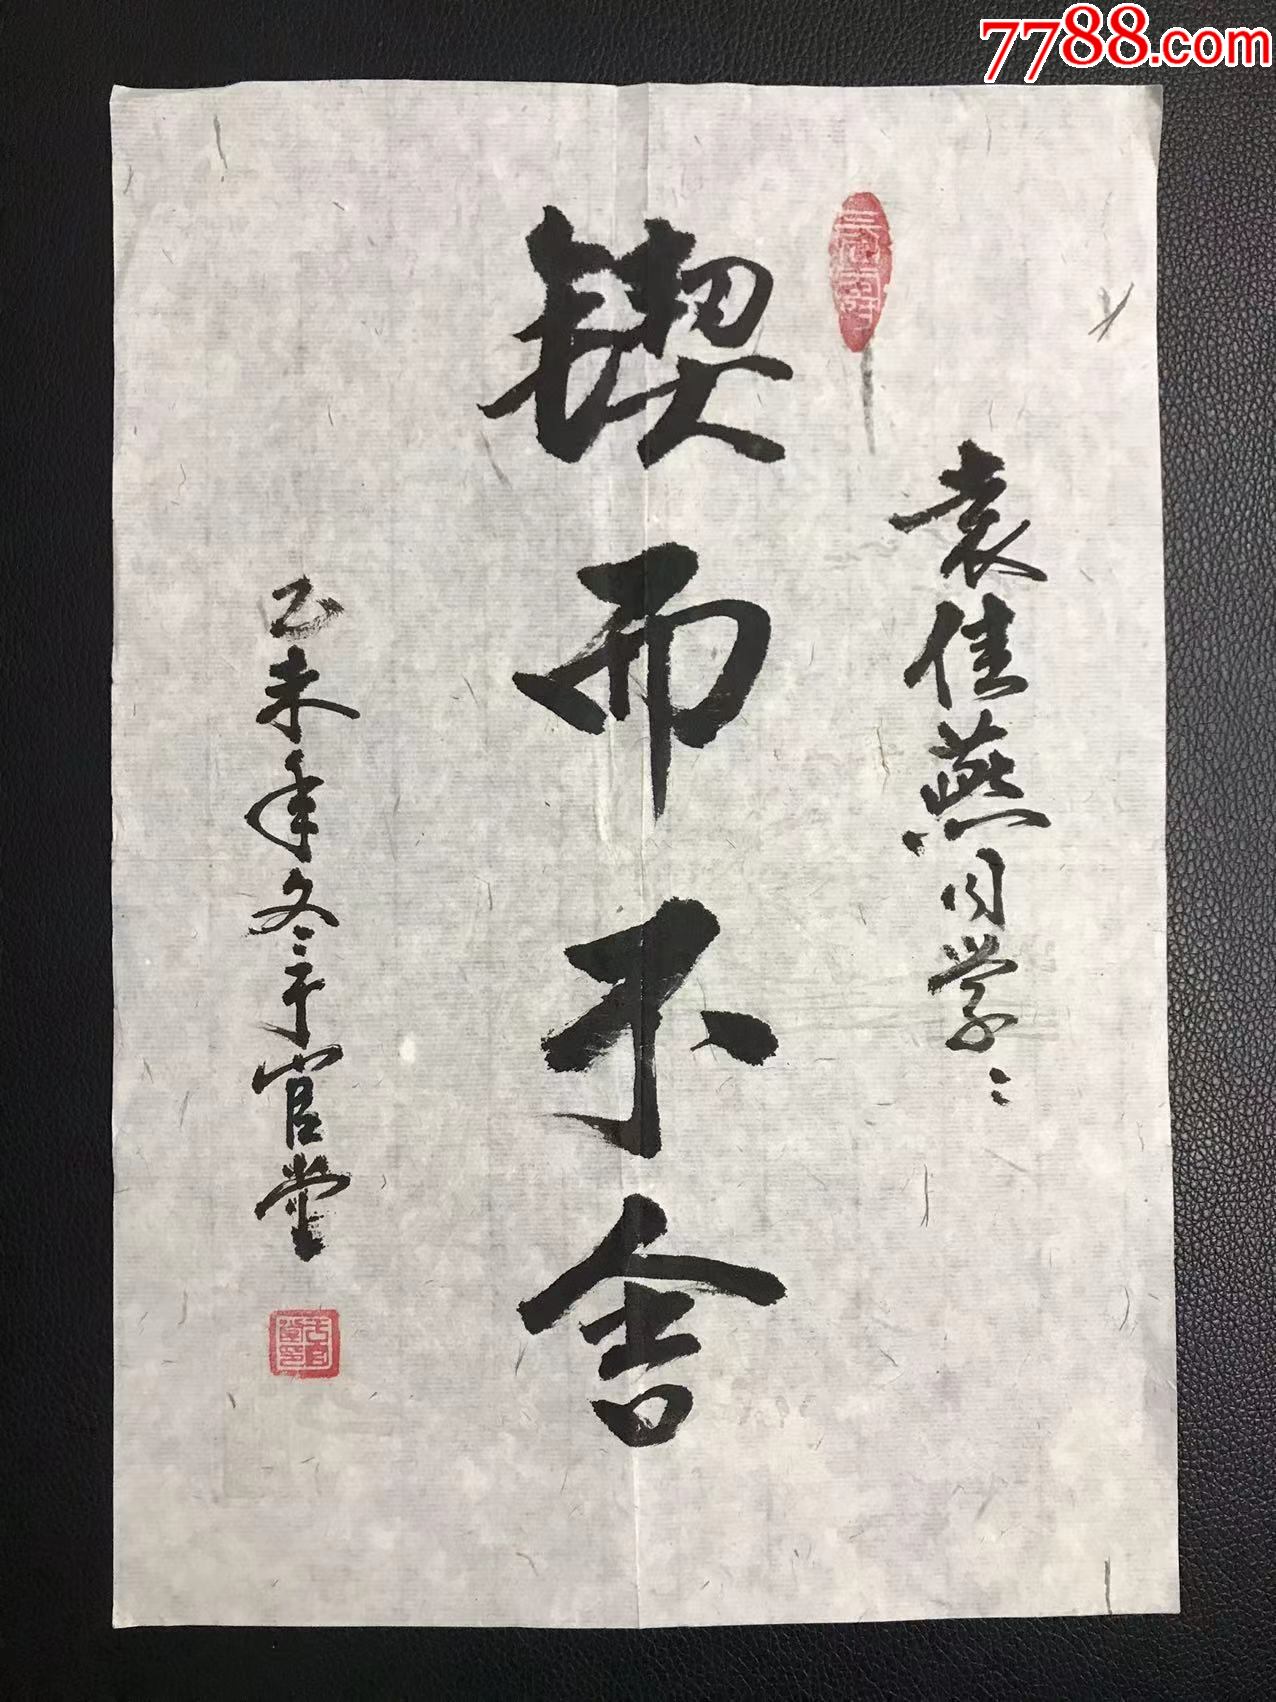 7788.com
袁佳燕同学
锲而不舍
乙未年冬于官堂